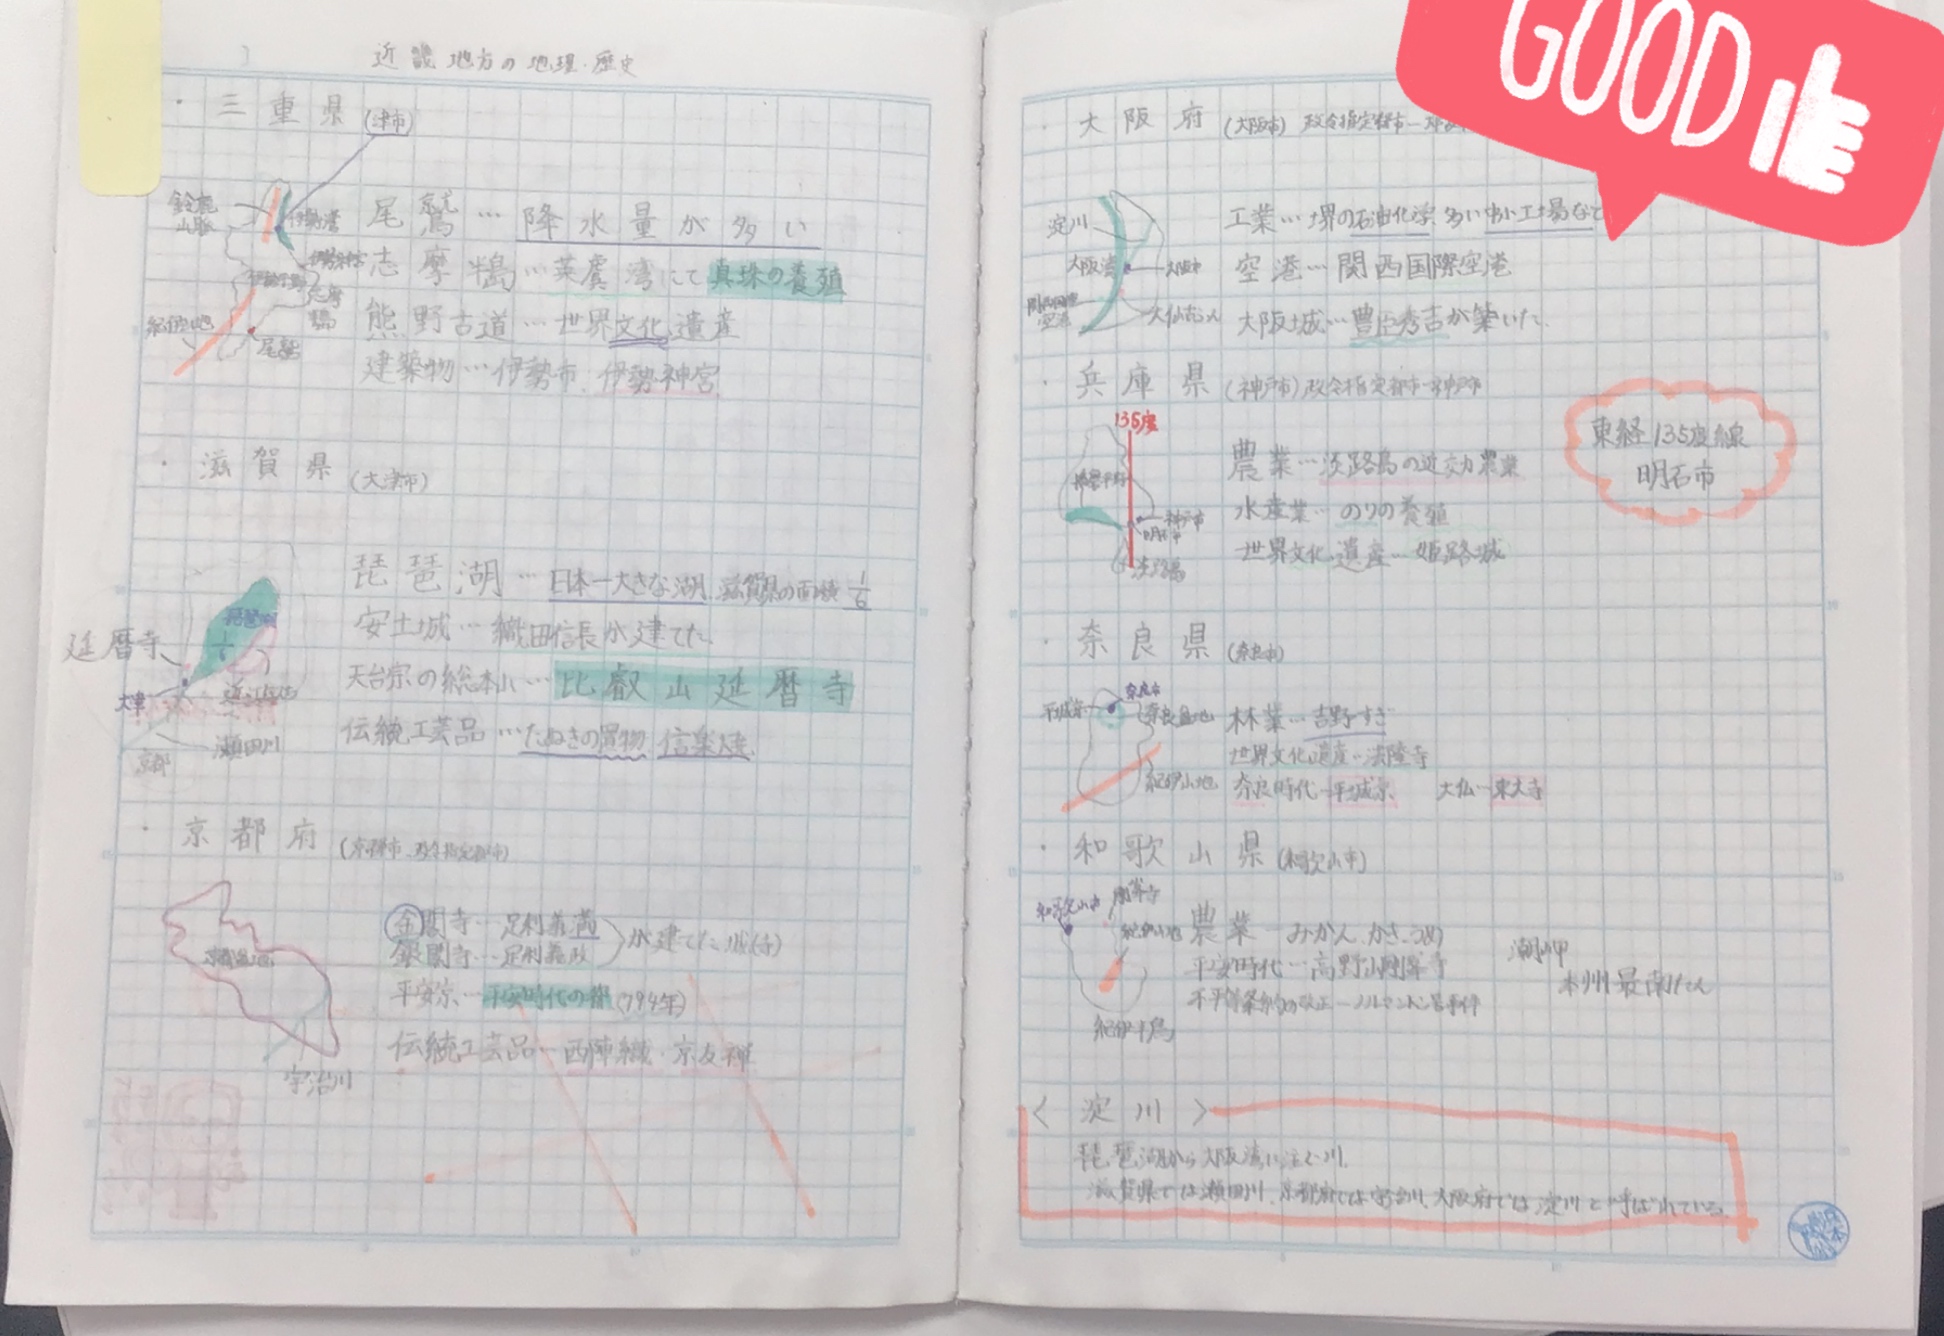 近畿地方の地理・歴史
・三重県(津市)
鈴鹿
山脈
伊勢湾
尾鷲…降水量が多い
志摩半島…英虞湾にて真珠の養殖
熊野古道…世界文化遺産
建築物…伊勢市.伊勢神宮
紀伊山地
尾鷲
・滋賀県(大津市)
琵琶湖…日本一大きな湖.滋賀県の面積1/6
安土城…織田信長が建てた.
天台宗の総本山…比叡山延暦寺
伝統工芸品…たぬきの置物.信楽焼.
琵琶湖
1/6
延暦寺
大津
瀬田川
京都
・京都府(京都市.政令指定都市)
金閣寺…足利義満
銀閣寺…足利義政
が建てた城(寺)
平安京…平安時代の都(794年)
伝統工芸品…西陣織・京友禅
宇治川
GOOD
・大阪府(大阪市)政令指定都市ー
淀川
大阪湾
大阪市
工業…堺の石油化学.多い中小工場など
空港…関西国際空港
大阪城…豊臣秀吉が築いた.
・兵庫県(神戸市)政令指定都市ー神戸市
135度
播磨平野
神戸市
明石市
淡路島
農業…淡路島の近効農業
水産業…のりの養殖
世界文化遺産…姫路城
東経135度線
明石市
・奈良県(奈良市)
平城京
奈良市
奈良盆地
紀伊山地
林業…吉野すぎ
世界文化遺産…法隆寺
奈良時代ー平城京 大仏ー東大寺
・和歌山県(和歌山市)
和歌山市
紀伊山地
紀伊半島
農業ーみかん.かき.うめ
平安時代…高野山金剛峯寺
不平等条約の改正ーノルマントン号事件
潮岬
本州最南たん
<淀川>
琵琶湖から大阪湾に注ぐ川.
滋賀県では瀬田川.京都府では宇治川.大阪府では淀川と呼ばれている.